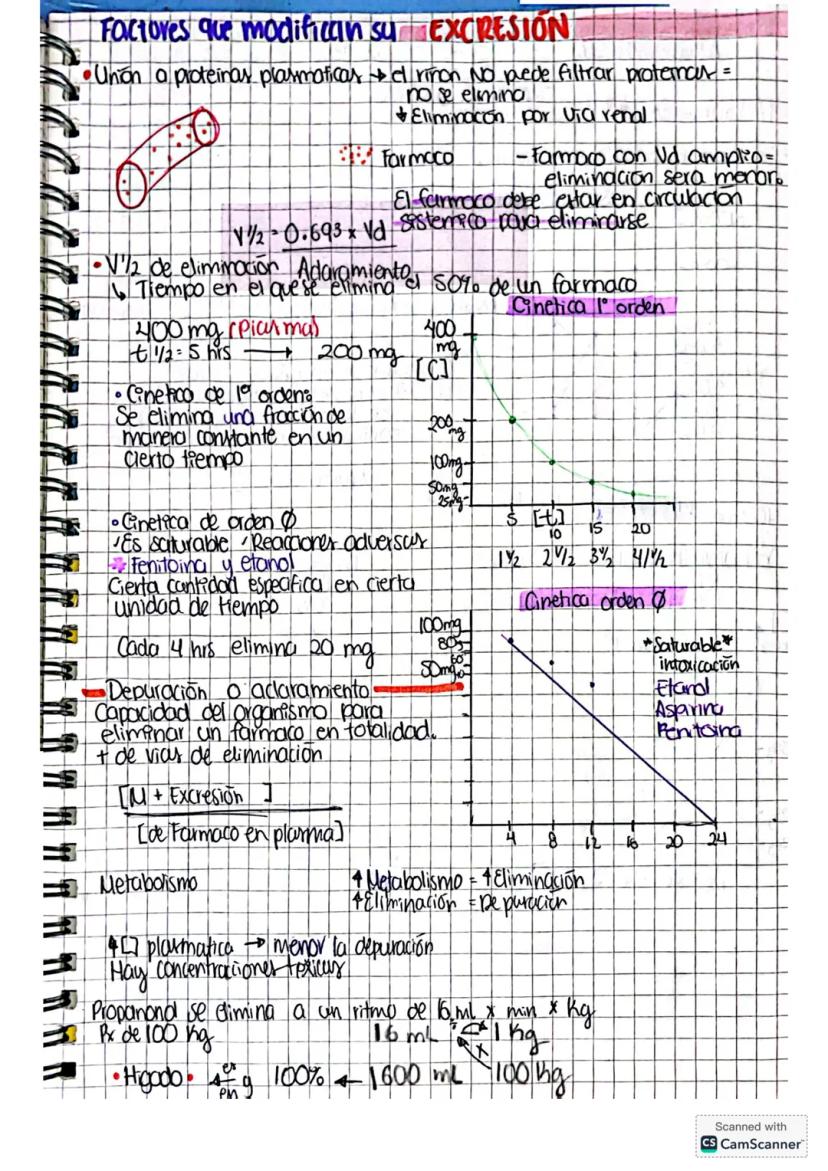 Factores que modifican su EXCRESIÓN
• Unión a proteinas plasmaticas → el riñon NO puede filtrar proteinas =
no se elimina
↓ Eliminación por via renal
Farmaco
- Farmaco con Vd amplio =
eliminación sera menor.
El farmaco debe estar en circulación
sistemica para eliminarse
V 1/2 = 0.693 x Vd
Adaramiento
• V 1/2 de eliminación
↳ Tiempo en el que se elimina el 50% de un farmaco
Cinetica 1º orden
400 mg (Plasma)
t 1/2 = 5 hrs → 200 mg
400
mg
[C]
200 mg
100mg
50mg
25mg
5 [t] 10 15 20
1 1/2 2 1/2 3 1/2 4 1/2
• Cinetica de 1er orden:
Se elimina una fracción de
manera constante en un
cierto tiempo
• Cinetica de orden Ø
Es saturable Reacciones adversas
Fenitoina y etanol
Cierta cantidad especifica en cierta
unidad de tiempo
Cada 4 hrs elimina 20 mg
Cinetica orden Ø
100mg
80
60
50mg
40
*Saturable*
intoxicación
Etanol
Aspirina
Fenitoina
4 8 12 16 20 24
Depuración o aclaramiento
Capacidad del organismo para
eliminar un farmaco en totalidad.
+ de vias de eliminación
[M + Excresión ]
[de Farmaco en plasma]
Metabolismo
↑ Metabolismo = ↑ Eliminación
↑ Eliminación = Depuración
↑ [ ] plasmatica → menor la depuración
Hay concentraciones toxicas
Propanonol se elimina a un ritmo de 16 mL x min x Kg
Px de 100 Kg
16 mL 1 Kg
x
• Higado • 100% ← 1600 mL 100 Kg
Scanned with
CS CamScanner